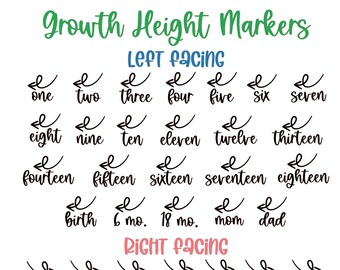 Growth Height Markers
LEFT FACING
one two three four five six seven
eight nine ten eleven twelve thirteen
fourteen fifteen sixteen seventeen eighteen
birth 6 mo. 18 mo. mom dad
RIGHT FACING